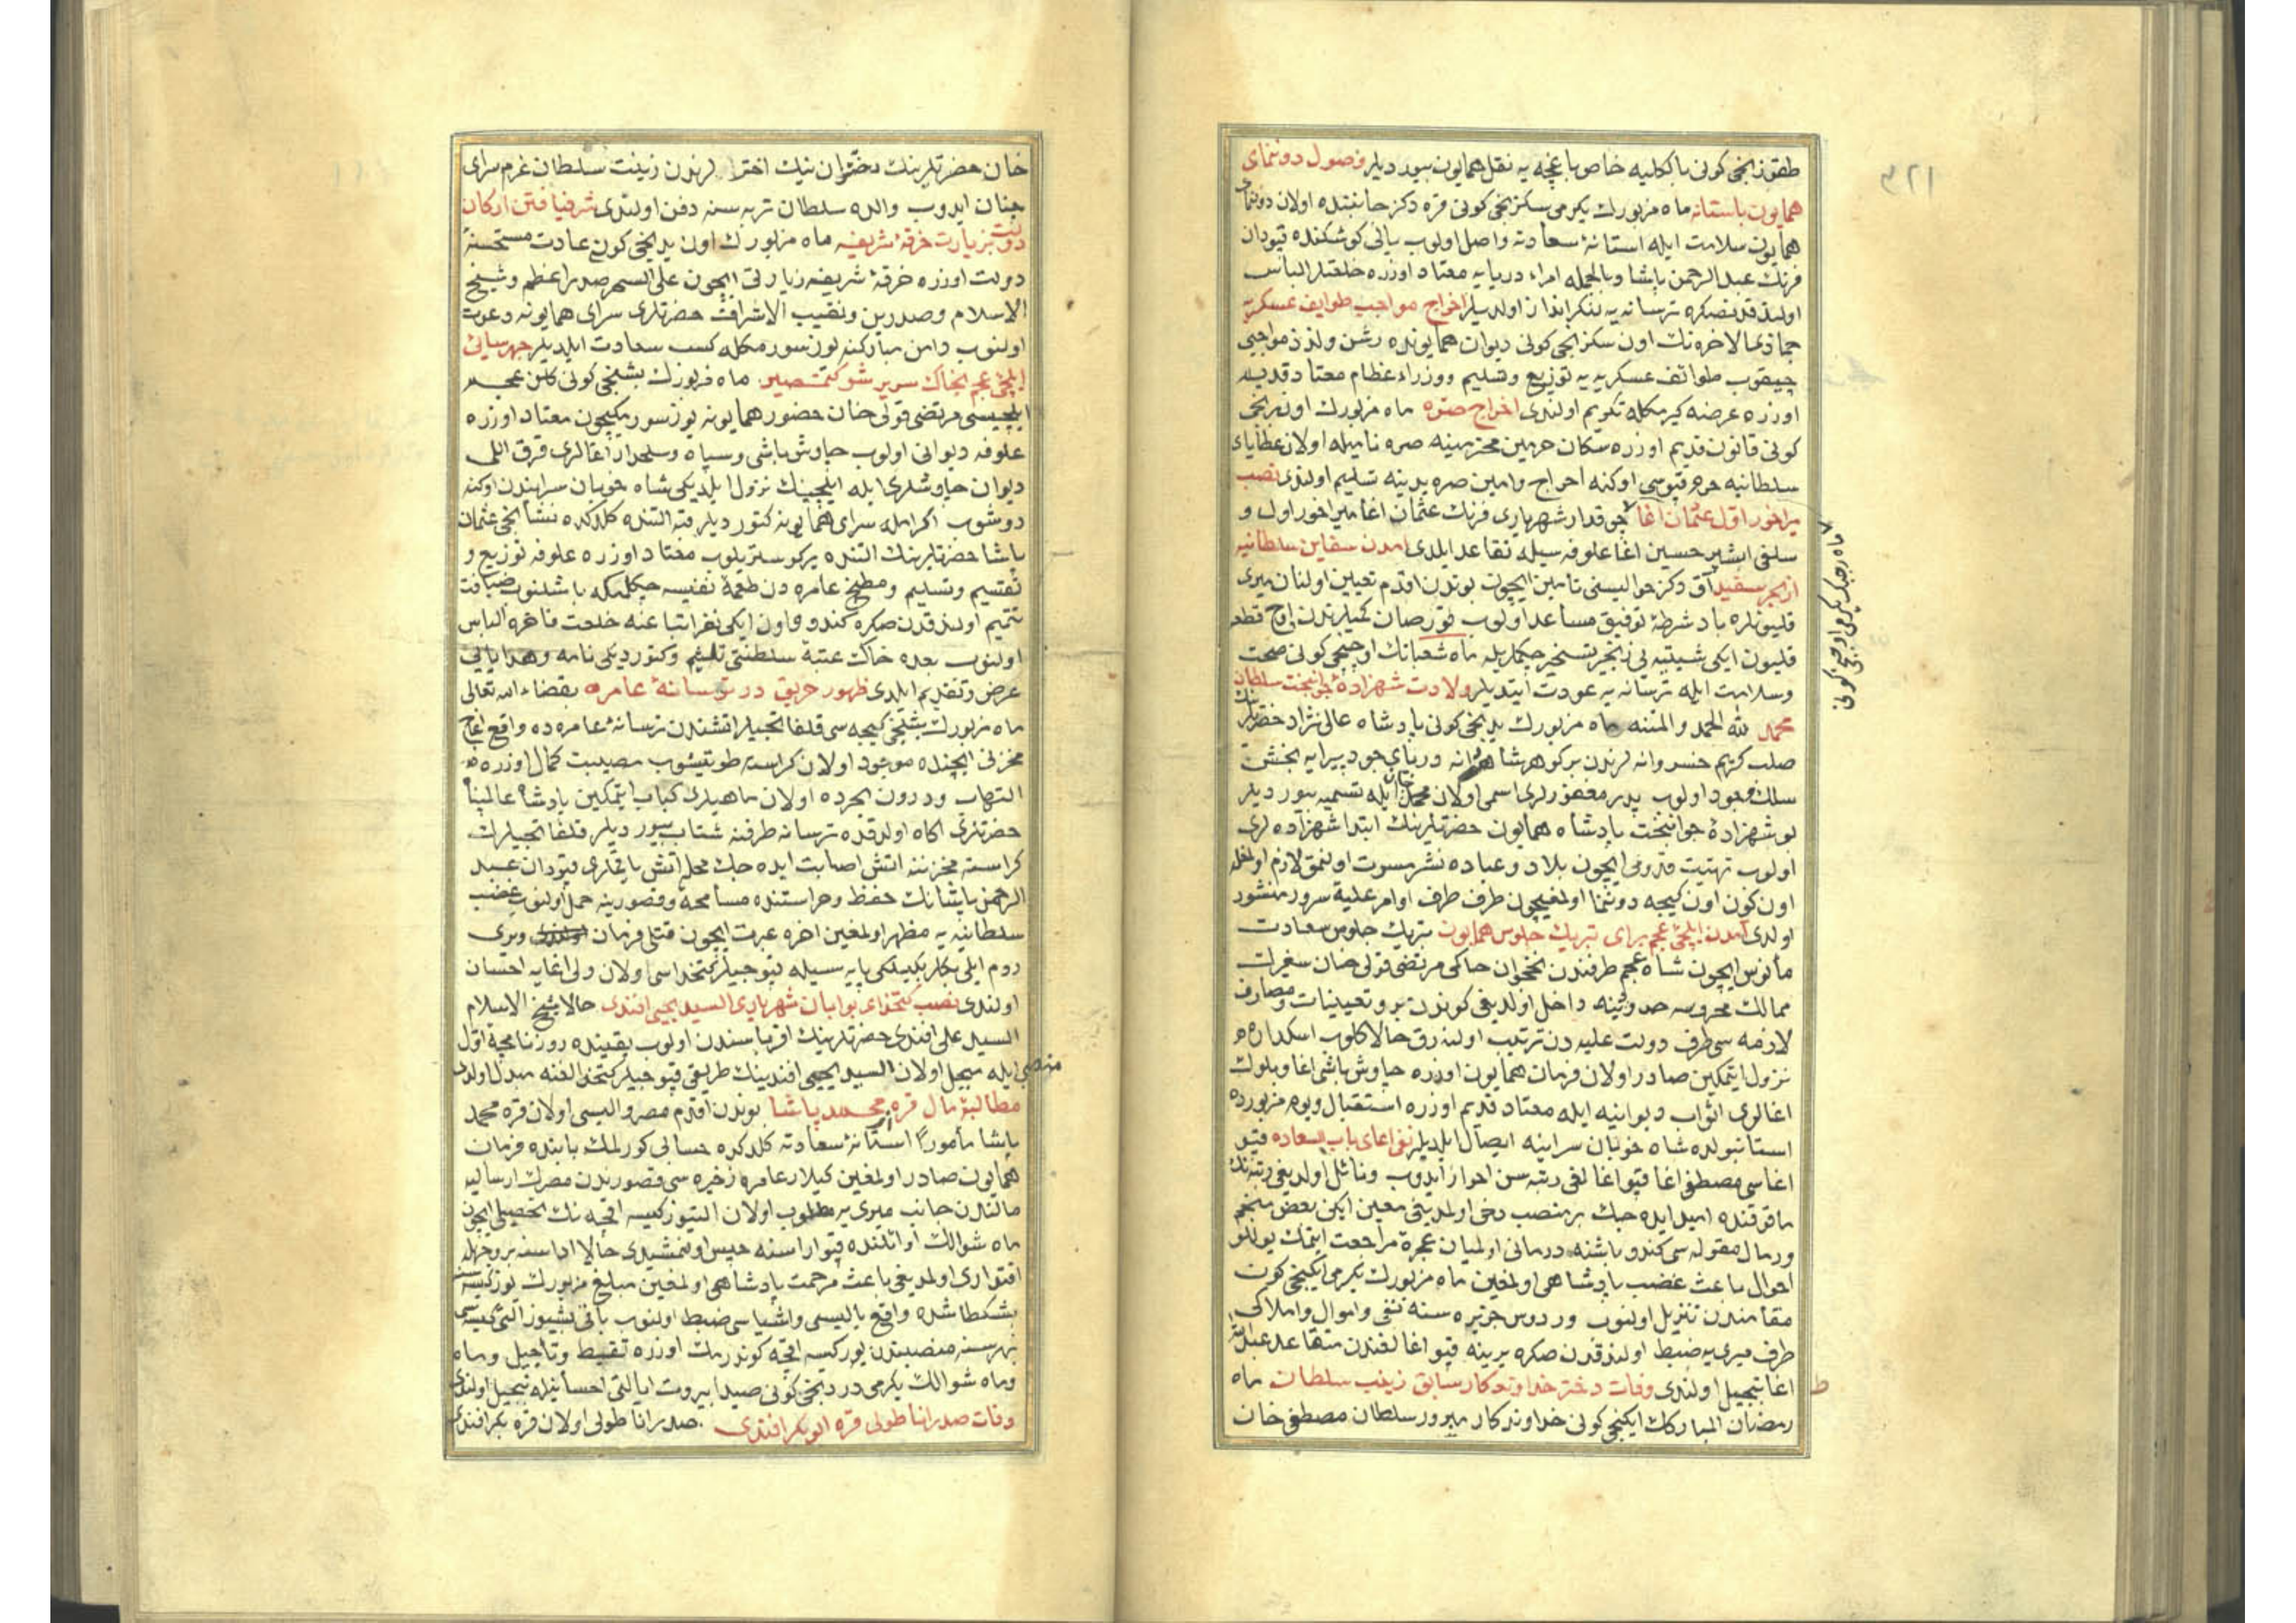 طقوزنجی کونی بالکلیه خاص باغچه یه نقل همایون بیوردیلر وصول دونمای
همایون باستانه ماه مزبورك یکرمی سکزنجی کونی قره دکز جانبنده اولان دونمای
همایون سلامت ایله استانهٔ سعادته واصل اولوب یالی کوشکنده قپودان
فرنك عبدالرحمن پاشا وبالجمله امراء دریایه معتاد اوزره خلعتلر الباس
اولندقدنصکره ترسانه یه لنکرانداز اولدیلر اخراج مواجب طوایف عسکریه
جماذی الاخره نك اون سکزنجی کونی دیوان همایونده رشن ولذذ مواجبی
چیقوب طوائف عسکریه یه توزیع وتسلیم ووزراء عظام معتاد قدیمه
اوزره عرضه کیرمکله تکریم اولندی اخراج صره ماه مزبورك اوننجی
کونی قانون قدیم اوزره سکان حرمین محترمینه صره نامیله اولان عطایای
سلطانیه حرم قپوسی اوکنه اخراج وامین صره یدینه تسلیم اولندی نصب
میراخور اول عثمان اغا جوقدار شهریاری فرنك عثمان اغا میراخور اول و
سلفی ابشیر حسین اغا علوفه سیله تقاعد ایلدی امدن سفاین سلطانیه
از بحر سفید آق دکز حوالیسنی تامین ایچون بوندن اقدم تعیین اولنان میری
قلیونلره باد شرطهٔ توفیق مساعد اولوب قورصان کمیلرندن اوچ قطعه
قلیون ایکی شیتیه یی زنجیر تسخیره چکملریله ماه شعبانك اوچنجی کونی صحت
وسلامت ایله ترسانه یه عودت ایتدیلر ولادت شهزادهٔ جوانبخت سلطان
محمد لله الحمد والمنه ماه مزبورك یدنجی کونی پادشاه عالی نژاد حضرتلرینك
صلب کریم خسروانه لرندن برکوهر شاهوانه وریای جود پیرایه بخش
سلك وجود اولوب پدر مغفورلری اسمی اولان محمد خان ایله تسمیه بیوردیلر
بو شهزادهٔ جوانبخت پادشاه همایون حضرتلرینك ابتدا شهزاده لری
اولوب تهنیت قدومی ایچون بلاد وعباده نشر مسرت اولنمق لازم اولمغله
اون کون اون کیجه دونما اولمغیچون طرف طرف اوامر علیهٔ سرور منشور
اولدی آمدن ایلچی عجم برای تبریك جلوس همایون تبریك جلوس سعادت
مأنوس ایچون شاه عجم طرفندن نخجوان حاکمی مرتضی قولی خان سفیرلك
ممالك محروسه حدودینه داخل اولدیغی کوندن برو تعیینات ومصارف
لازمه سی طرف دولت علیه دن ترتیب اولنه رق حالا کلوب اسکدارده
نزول ایتمکین صادر اولان فرمان همایون اوزره چاوش باشی اغا وبلوك
اغالری اثواب دیوانیه ایله معتاد قدیم اوزره استقبال ویوم مزبورده
استانبولده شاه خوبان سراینه ایصال ایلدیلر نفی اغای باب السعاده قپو
اغاسی مصطفی اغا قپو اغالغی رتبه سن احراز ایدوب ونائل اولدیغی رتبه نك
مافوقنده امید ایده جك بر منصب دخی اولمدیغی معین ایکن بعض منجم
ورمال مقوله سی کندو باشنه درمانی اولمیان عجزه مراجعت ایتمك یوللو
احوال باعث غضب پادشاهی اولمغین ماه مزبورك یکرمی ایکنجی کون
مقامندن تنزیل اولنوب وردوس جزیره سنه نفی واموال واملاکی
طرف میری یه ضبط اولندقدن صکره یرینه قپو اغالغندن متقاعد عبدالله
اغا تبجیل اولندی وفات دختر خداوندکار سابق زینب سلطان ماه
رمضان المبارکك ایکنجی کونی خداوندکار مبرور سلطان مصطفی خان
ماه رجبك یکرمی اوچنجی کونی
خان حضرتلرینك دختران نیك اخترلرندن زینت سلطان عزم سرای
جنان ایدوب والده سلطان تربه سنه دفن اولندی شرفیافتن ارکان
دولت بزیارت خرقهٔ شریفه ماه مزبورك اون یدنجی کون عادت مستحسنهٔ
دولت اوزره خرقهٔ شریفه زیارتی ایچون علی السحر صدراعظم وشیخ
الاسلام وصدرین ونقیب الاشراف حضرتلری سرای همایونه دعوت
اولنوب دامن مبارکنه یوز سورمکله کسب سعادت ایلدیلر چهرسایئ
ایلچئ عجم بخاك سریر شوکتمصیر ماه مزبورك بشنجی کونی کلن عجم
ایلچیسی مرتضی قولی خان حضور همایونه یوز سورمکیچون معتاد اوزره
علوفه دیوانی اولوب چاوش باشی وسپاه وسلحدار اغالری قرق اللی
دیوان چاوشلری ایله ایلچینك نزول ایلدیکی شاه خوبان سرایندن اوکنه
دوشوب اکرامله سرای همایونه کتوردیلر قبه التنده کلدکده نشانجی عثمان
پاشا حضرتلرینك التنده یر کوستریلوب معتاد اوزره علوفه توزیع و
تقسیم وتسلیم ومطبخ عامره دن طعمهٔ نفیسه چکلمکه باشلنوب ضیافت
تتمیم اولندقدن صکره کندو واون ایکی نفر اتباعنه خلعت فاخره الباس
اولنوب بعده خاك عتبهٔ سلطنتی تلثیم وکتوردیکی نامه وهدایایی
عرض وتقدیم ایلدی ظهور حریق در ترسانهٔ عامره بقضاء الله تعالی
ماه مزبورك بشنجی کیجه سی قلفاتجیلر اتشندن ترسانهٔ عامره ده واقع اغاج
مخزنی ایچنده موجود اولان کراسته طوتیشوب مصیبت کمال اوزره
التهاب ودرون بحرده اولان ماهیلری کباب ایتمکین پادشاه عالمپناه
حضرتلری اکاه اولدقده ترسانه طرفنه شتاب بیوردیلر قلفاتجیلرك
کراسته مخزننه اتش اصابت ایده جك محله اتش یاقلدی قپودان عبد
الرحمن پاشانك حفظ وحراستنده مسامحه وقصورینه حمل اولنوب غضب
سلطانیه یه مظهر اولمغین اخره عبرت ایچون قتلی فرمان ویری
روم ایلی بکلربکیلکی پایه سیله قپوجیلر کتخداسی اولان ولی اغایه احسان
اولندی نصب کتخدای بوابان شهریاری السید یحیی افندی حالا شیخ الاسلام
السید علی افندی حضرتلرینك اقرباسندن اولوب بقینده روزنامچهٔ اول
منصبی ایله مبجل اولان السید یحیی افندینك طریقی قپوجیلر کتخدالغنه مبدل اولدی
مطالبهٔ مال قره محمد پاشا بوندن اقدم مصر والیسی اولان قره محمد
پاشا مأمورًا استانهٔ سعادته کلدکده حسابی کورلمك بابنده فرمان
همایون صادر اولمغین کیلار عامره ذخیره سی قصورندن مصرك ارسالیه
مالندن جانب میری یه مطلوب اولان التیوز کیسه اقچه نك تحصیلی ایچون
ماه شوالك اوائلنده قپو اراسنه حبس اولنمشیدی حالا اداسنه بر وجهله
اقتداری اولمدیغی باعث مرحمت پادشاهی اولمغین مبلغ مزبورك یوز کیسه سنه
بشکطاشده واقع یالیسی واشیاسی ضبط اولنوب باقی بشیوز التی کیسه سی
بهر سنه منصبندن یوز کیسه اقچه کوندرمك اوزره تقسیط وتأجیل وماه
وماه شوالك یکرمی دردنجی کونی صیدا بیروت ایالتی احسانیله تبجیل اولندی
وفات صدر اناطولی قره ابوبکر افندی صدر اناطولی اولان قره بکر افندی